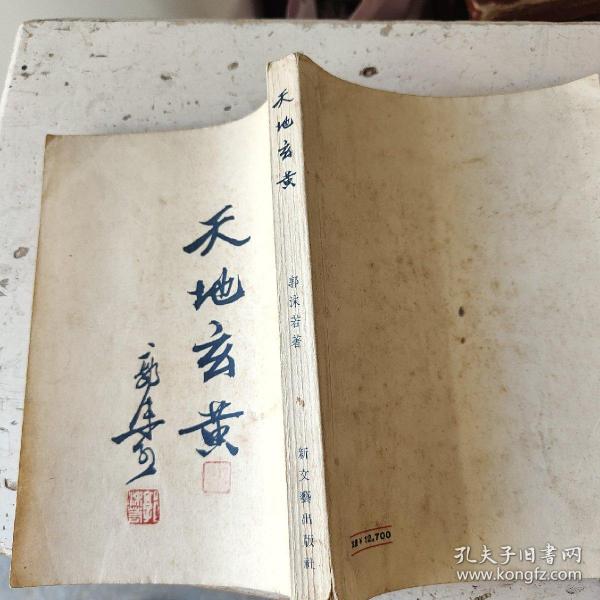 天地玄黄
郭沫若
天地玄黄
郭沫若著
新文藝出版社
¥12,700
孔夫子旧书网
www.kongfz.com